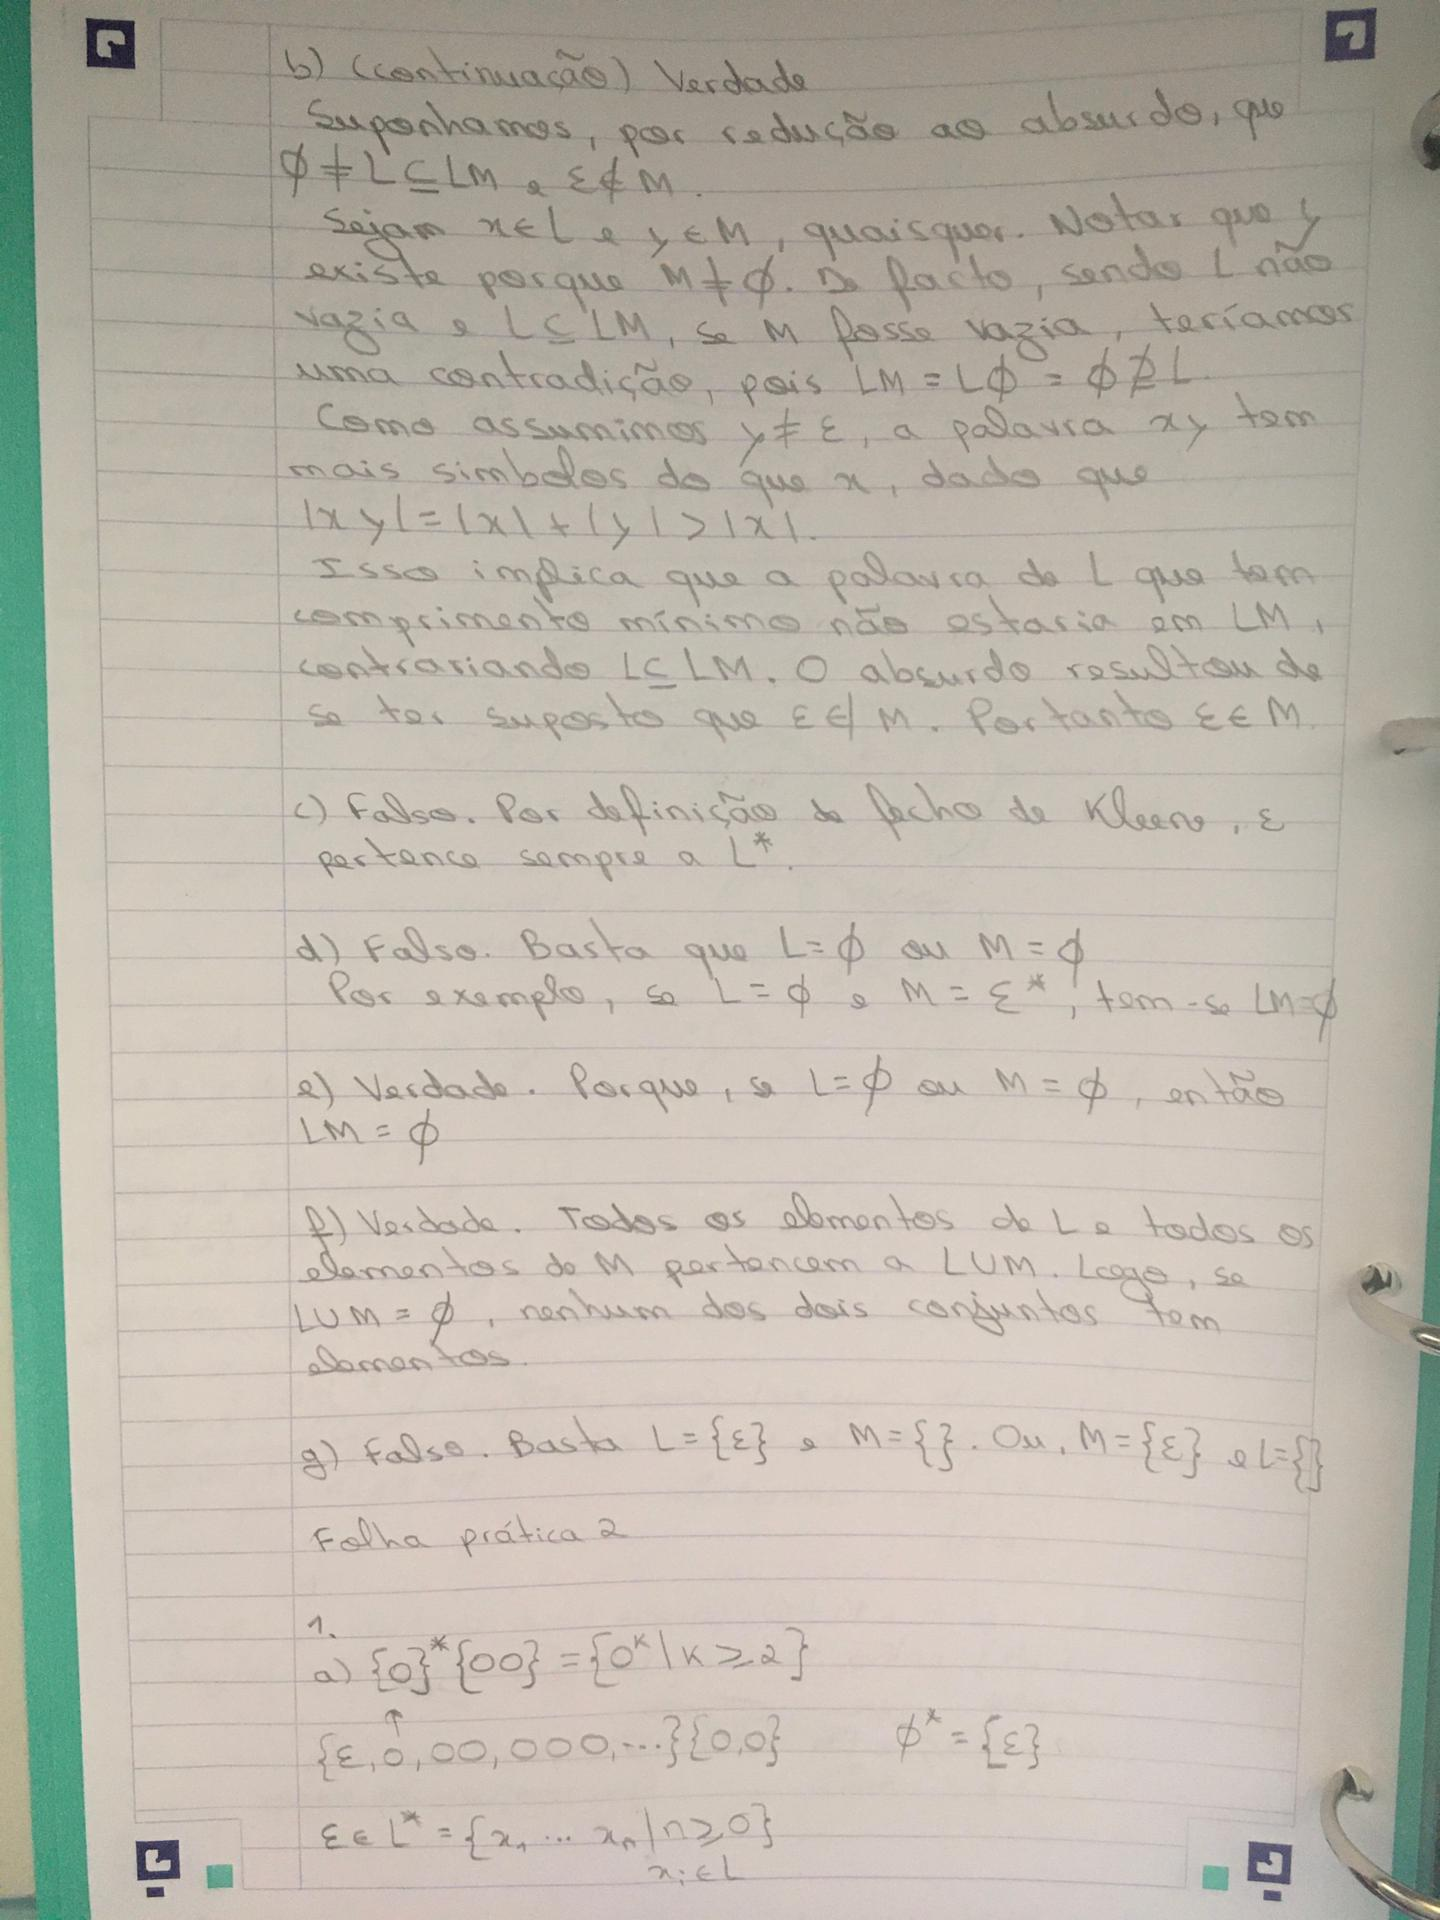 b) (continuação) Verdade
Suponhamos, por redução ao absurdo, que
∅ ≠ L ⊆ LM e ε ∉ M.
Sejam x ∈ L e y ∈ M, quaisquer. Notar que y
existe porque M ≠ ∅. De facto, sendo L não
vazia e L ⊆ LM, se M fosse vazia, teríamos
uma contradição, pois LM = L∅ = ∅ ⊉ L.
Como assumimos y ≠ ε, a palavra xy tem
mais simbolos do que x, dado que
|xy| = |x| + |y| > |x|.
Isso implica que a palavra de L que tem
comprimento mínimo não estaria em LM,
contrariando L ⊆ LM. O absurdo resultou de
se ter suposto que ε ∉ M. Portanto ε ∈ M.
c) Falso. Por definição de fecho de Kleene, ε
pertence sempre a L*.
d) Falso. Basta que L = ∅ ou M = ∅
Por exemplo, se L = ∅ e M = Σ*, tem-se LM = ∅
e) Verdade. Porque, se L = ∅ ou M = ∅, então
LM = ∅
f) Verdade. Todos os elementos de L e todos os
elementos de M pertencem a L∪M. Logo, se
L∪M = ∅, nenhum dos dois conjuntos tem
elementos.
g) Falso. Basta L = {ε} e M = {}. Ou, M = {ε} e L = {}
Folha prática 2
1.
a) {0}*{00} = {0^k | k ≥ 2}
↑
{ε, 0, 00, 000, ...}{0,0} ∅* = {ε}
ε ∈ L* = {x₁ ... xₙ | n ≥ 0}
xᵢ ∈ L